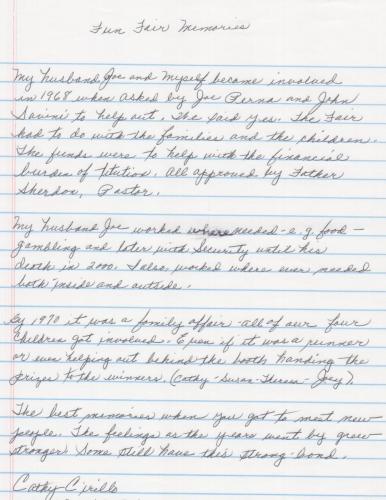 Fun Fair Memories
My husband Joe and myself became involved
in 1968 when asked by Joe Perna and John
Savini to help out. The said yes. The Fair
had to do with the families and the children.
The funds were to help with the financial
burden of tuition. All approved by Father
Sherdon, Pastor.
My husband Joe worked where needed - e.g. food -
gambling and later with Security until his
death in 2000. I also worked where ever needed
both inside and outside.
By 1970 it was a family affair - all of our four
Children got involved. Even if it was a runner
or even helping out behind the booth handing the
prizes to the winners. (Cathy - Susan - Theresa - Joey).
The best memories when you got to meet new
people. The feelings as the years went by grew
stronger. Some still have this strong-bond.
Cathy Cirillo